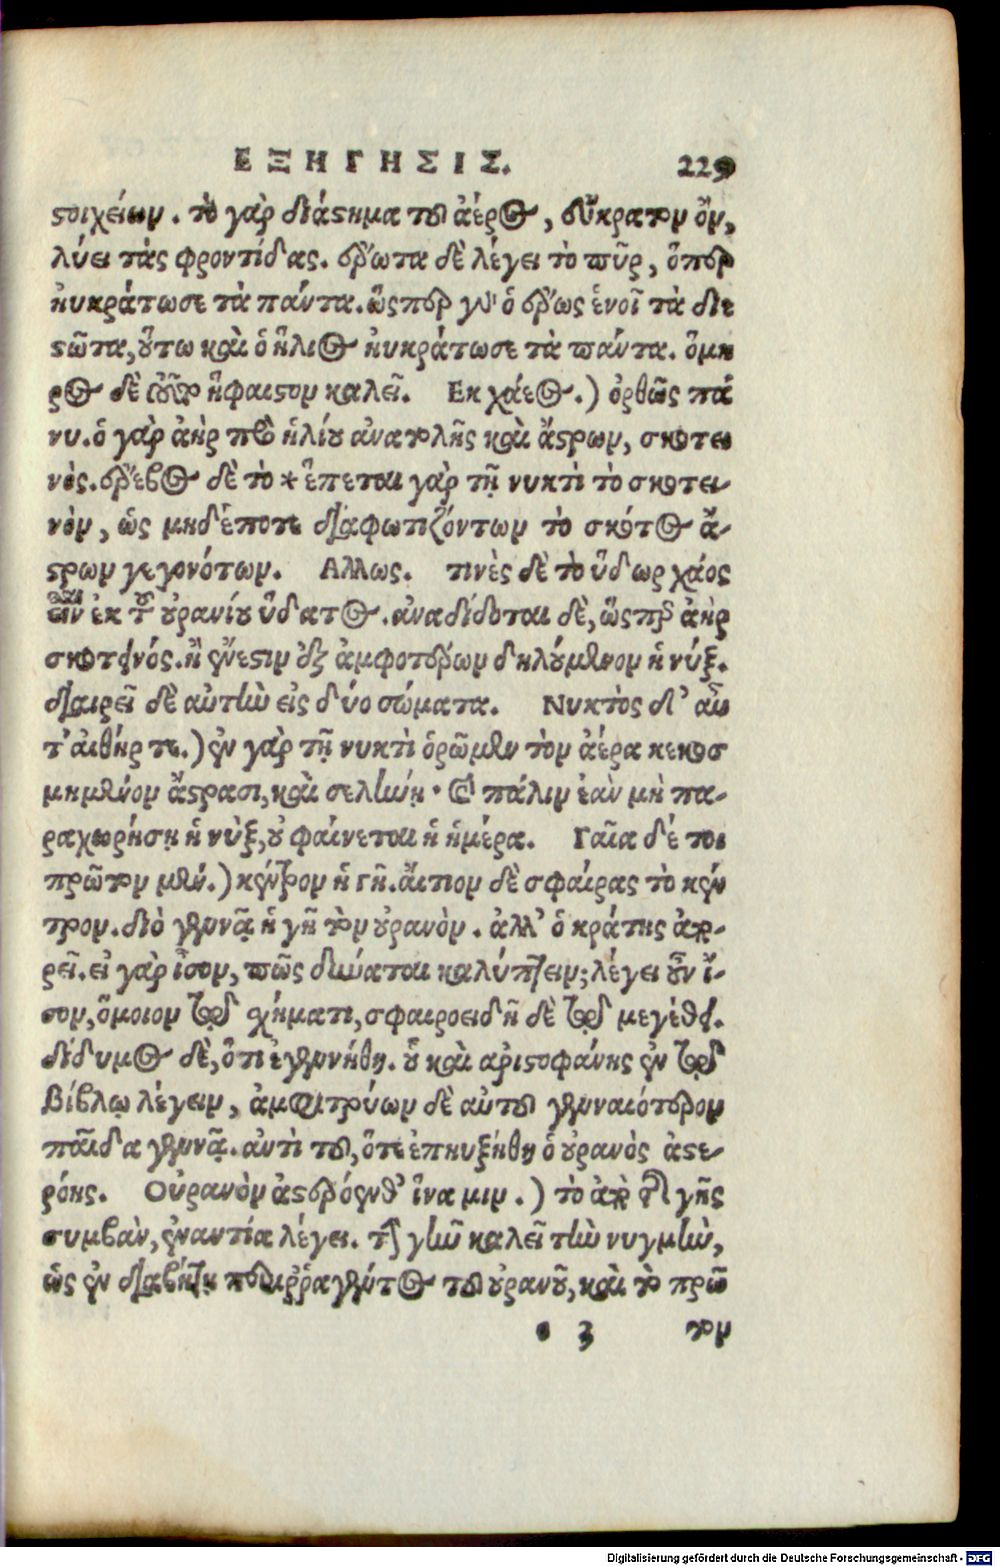 ΕΞΗΓΗΣΙΣ. 229
ϛοιχείωμ. τὸ γὰρ διάϛημα τοῦ ἀέρος, εὔκρατομ ὄμ,
λύει τὰς φροντίδας. ἔρωτα δὲ λέγει τὸ πῦρ, ὅπερ
ηὐκράτωσε τὰ πάντα. ὥςπερ γὰρ ὁ ἔρως ἑνοῖ τὰ διε
ϛῶτα, οὕτω καὶ ὁ ἥλιος ηὐκράτωσε τὰ πάντα. ὅμη
ρος δὲ τοῦτομ ἥφαιϛομ καλεῖ. Εκ χάεος.) ὀρθῶς πά
νυ. ὁ γὰρ ἀὴρ πρὸ ἡλίου ἀνατολῆς καὶ ἄϛρωμ, σκοτει
νὸς. ἔρεβος δὲ τὸ * ἕπεται γὰρ τῇ νυκτὶ τὸ σκοτει-
νὸμ, ὡς μηδέποτε διαφωτιζόντωμ τὸ σκότος ἄ-
ϛρωμ γεγονότωμ. Αλλως. τινὲς δὲ τὸ ὕδωρ χάος
εἶναι ἐκ τοῦ οὐρανίου ὕδατος. ἀναδίδοται δὲ, ὥςπερ ἀὴρ
σκοτεινός. ἢ ἔνεϛιμ ἐξ ἀμφοτέρωμ δηλούμενομ ἡ νύξ.
διαιρεῖ δὲ αὐτὴν εἰς δύο σώματα. Νυκτὸς δ' αὖ
τ' αἰθήρ τε.) ἐν γὰρ τῇ νυκτὶ ὁρῶμεν τὸμ ἀέρα κεκοσ
μημένομ ἄϛρασι, καὶ σελήνῃ. καὶ πάλιμ ἐὰν μὴ πα-
ραχωρήσῃ ἡ νὺξ, οὐ φαίνεται ἡ ἡμέρα. Γαῖα δέ τοι
πρῶτομ μέν.) κέντρομ ἡ γῆ. αἴτιομ δὲ σφαίρας τὸ κέν
τρομ. διὸ γεννᾷ ἡ γῆ τὸμ οὐρανὸμ. ἀλλ' ὁ κράτης ἀπο-
ρεῖ. εἰ γὰρ ἴσομ, πῶς δύναται καλύπτειμ; λέγει οὖν ἴ-
σομ, ὅμοιομ τῷ χήματι, σφαιροειδῆ δὲ τῷ μεγέθει.
δίδυμος δὲ, ὅτι ἐγεννήθη. οὗ καὶ αριϛοφάνης ἐν τῷ
βίβλῳ λέγειμ, ἀμφιτρύωμ δὲ αὐτοῦ γενναιότερομ
παῖδα γεννᾷ. αντὶ τοῦ, ὅτε ἐπηυξήθη ὁ οὐρανὸς ἀϛε-
ρόης. Οὐρανὸμ ἀϛερόενθ' ἵνα μιμ.) τὸ ἀπὸ τῆς γῆς
συμβὰν, ἐναντία λέγει. τὴν γῆν καλεῖ τὴν νυγμὴν,
ὡς ἐν διαβήτῃ περιῤῥαγέντος τοῦ οὐρανοῦ, καὶ τὸ πρῶ
3 τομ
Digitalisierung gefördert durch die Deutsche Forschungsgemeinschaft - DFG